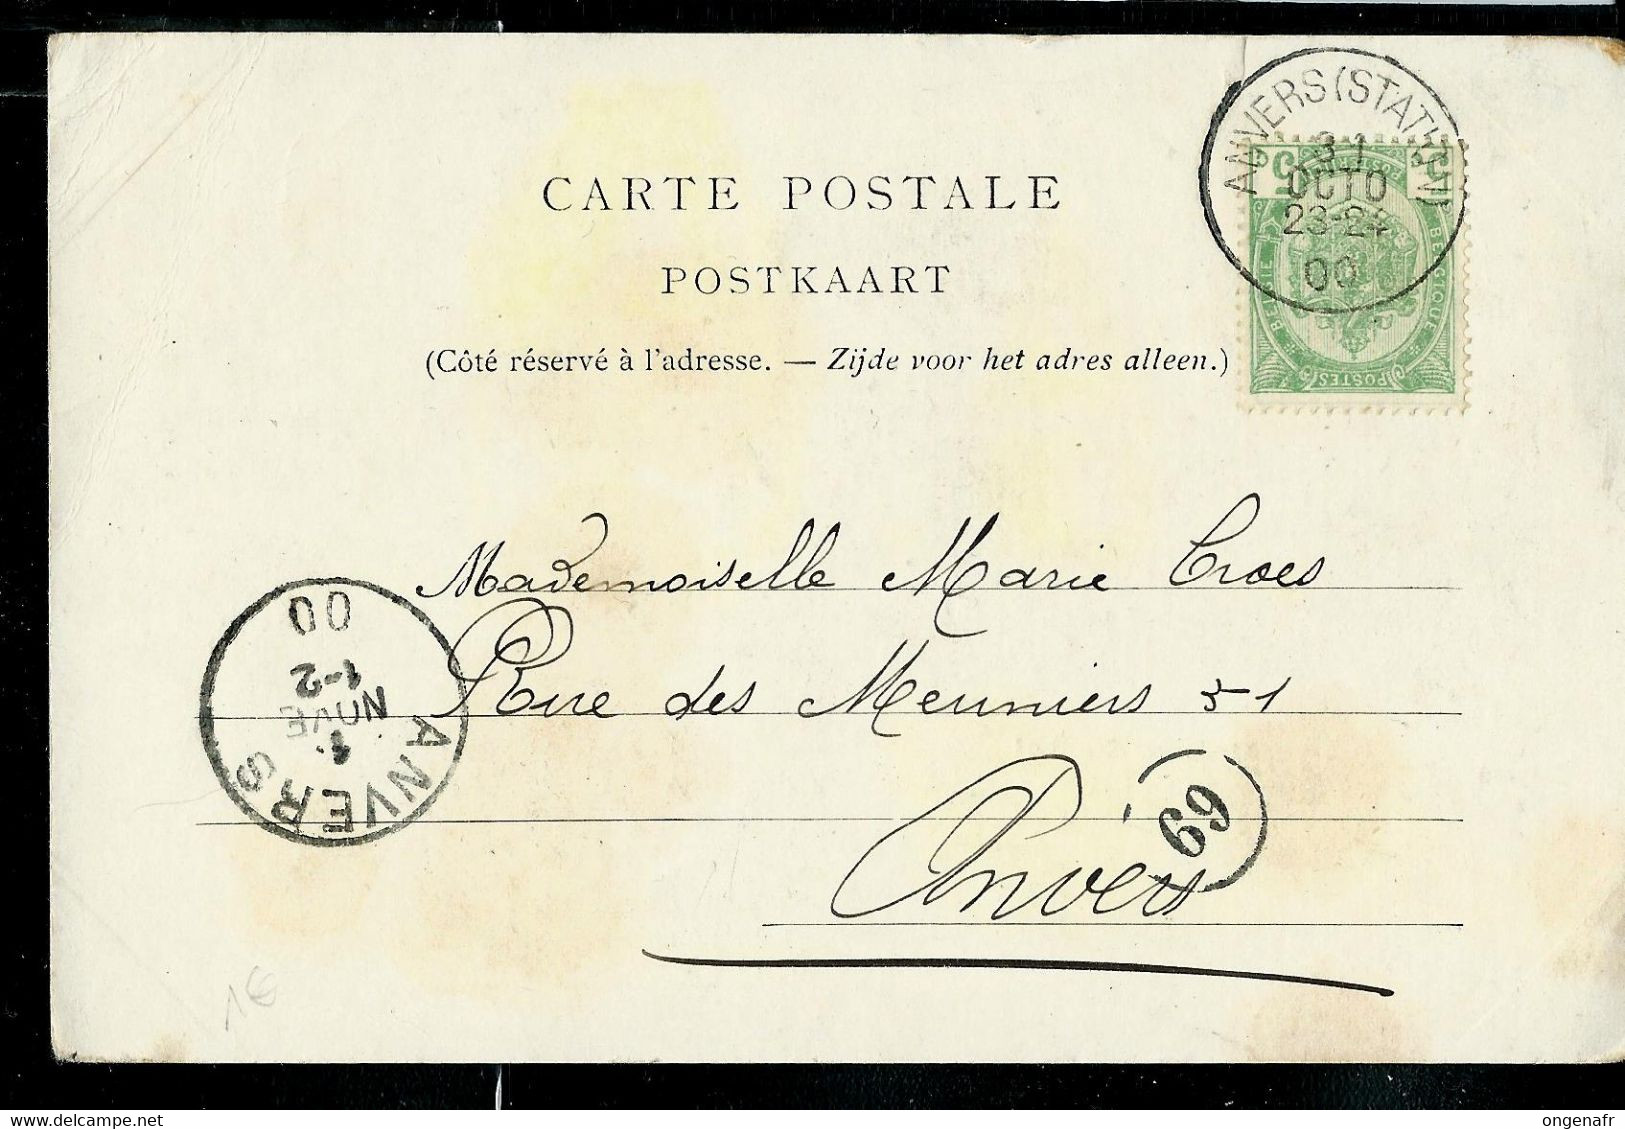 CARTE POSTALE
POSTKAART
(Côté réservé à l'adresse. — Zijde voor het adres alleen.)
ANVERS (STATION)
31
OCTO
23-24
00
5 5
BELGIE BELGIQUE
POSTES
Mademoiselle Marie Croes
Rue des Meuniers 51
Anvers
69
ANVERS
1
NOVE
1-2
00
1€
www.delcampe.net
ongenafr